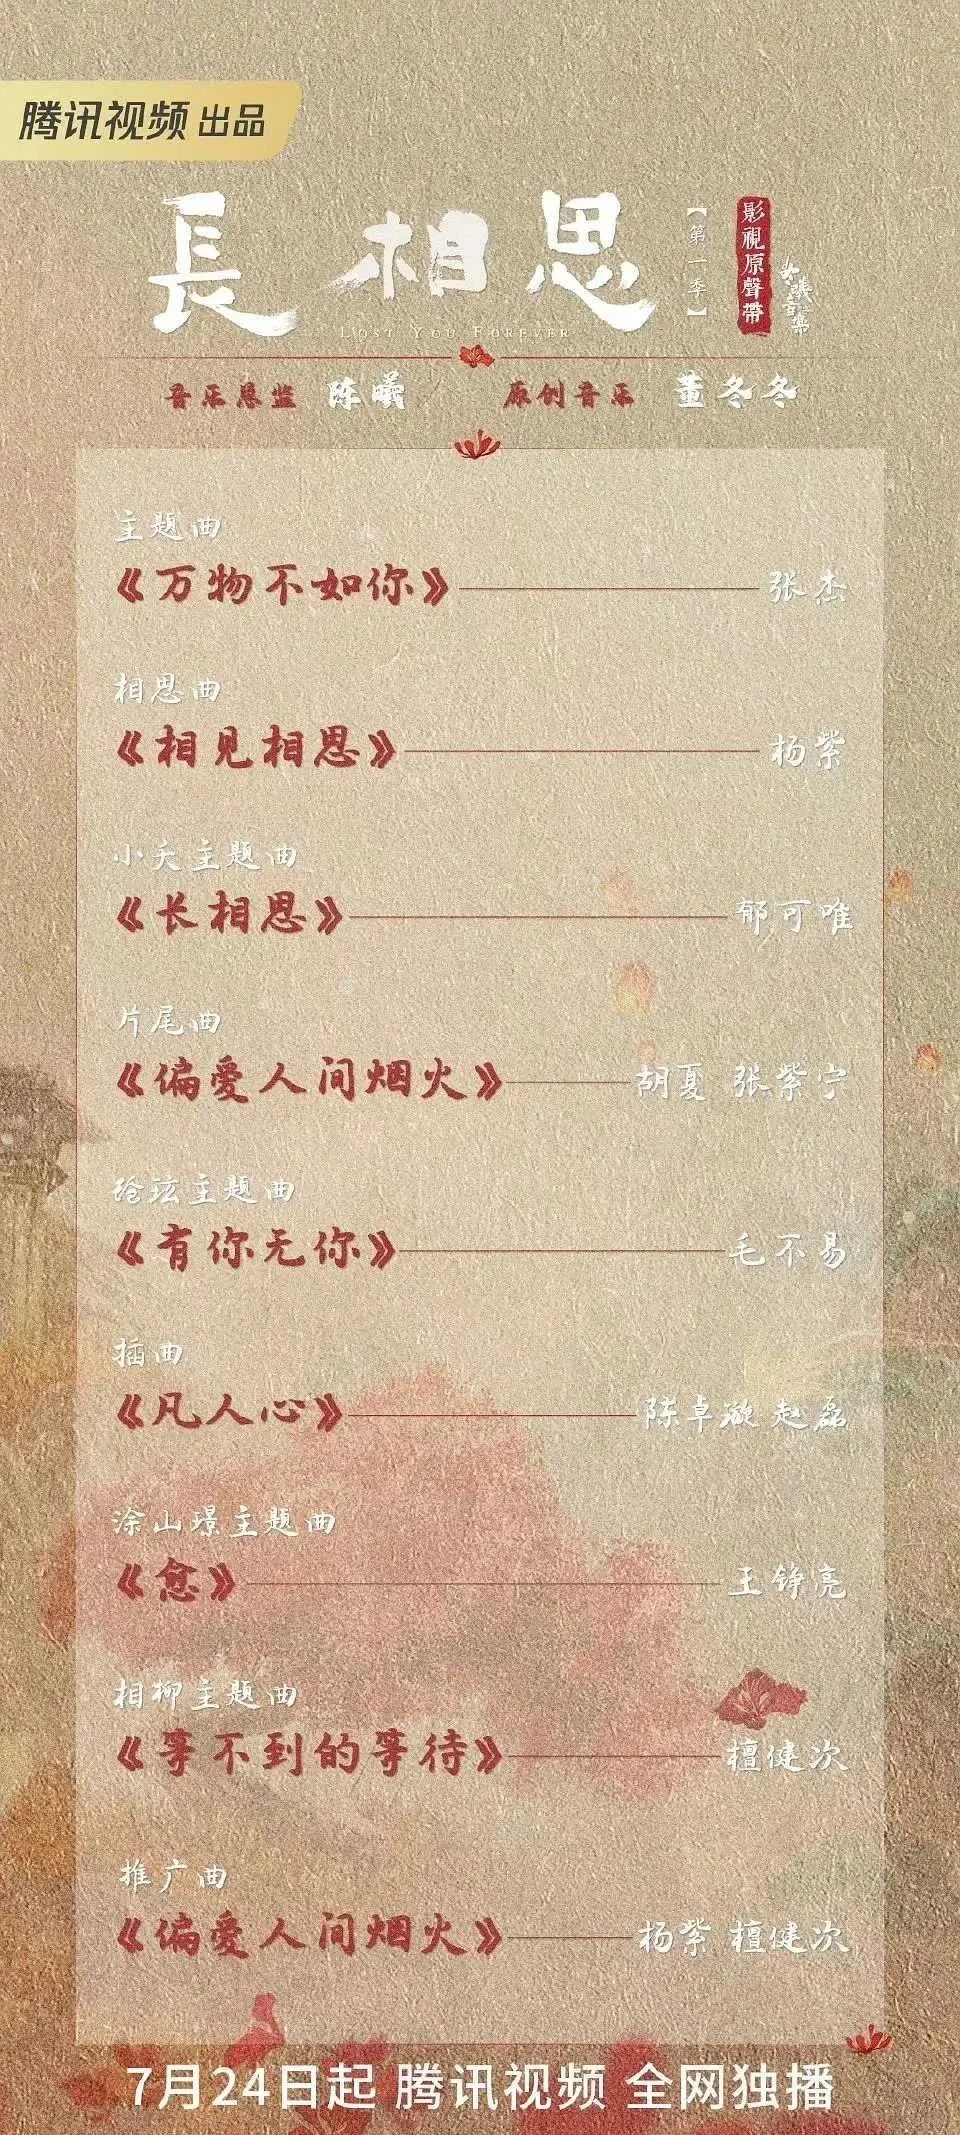 腾讯视频 出品
長相思
【第一季】
影視原聲帶
LOST YOU FOREVER
音乐总监 陈曦 原创音乐 董冬冬
主题曲
《万物不如你》 张杰
相思曲
《相见相思》 杨紫
小夭主题曲
《长相思》 郁可唯
片尾曲
《偏爱人间烟火》 胡夏 张紫宁
玱玹主题曲
《有你无你》 毛不易
插曲
《凡人心》 陈卓璇 赵磊
涂山璟主题曲
《愈》 王铮亮
相柳主题曲
《等不到的等待》 檀健次
推广曲
《偏爱人间烟火》 杨紫 檀健次
7月24日起 腾讯视频 全网独播